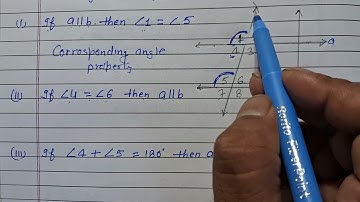 (i) If a||b then ∠1 = ∠5
Corrosponding angle
property
(ii) If ∠4 = ∠6 then a||b
(iii) If ∠4 + ∠5 = 180° then a
1
4 3
a
5 6
7 8